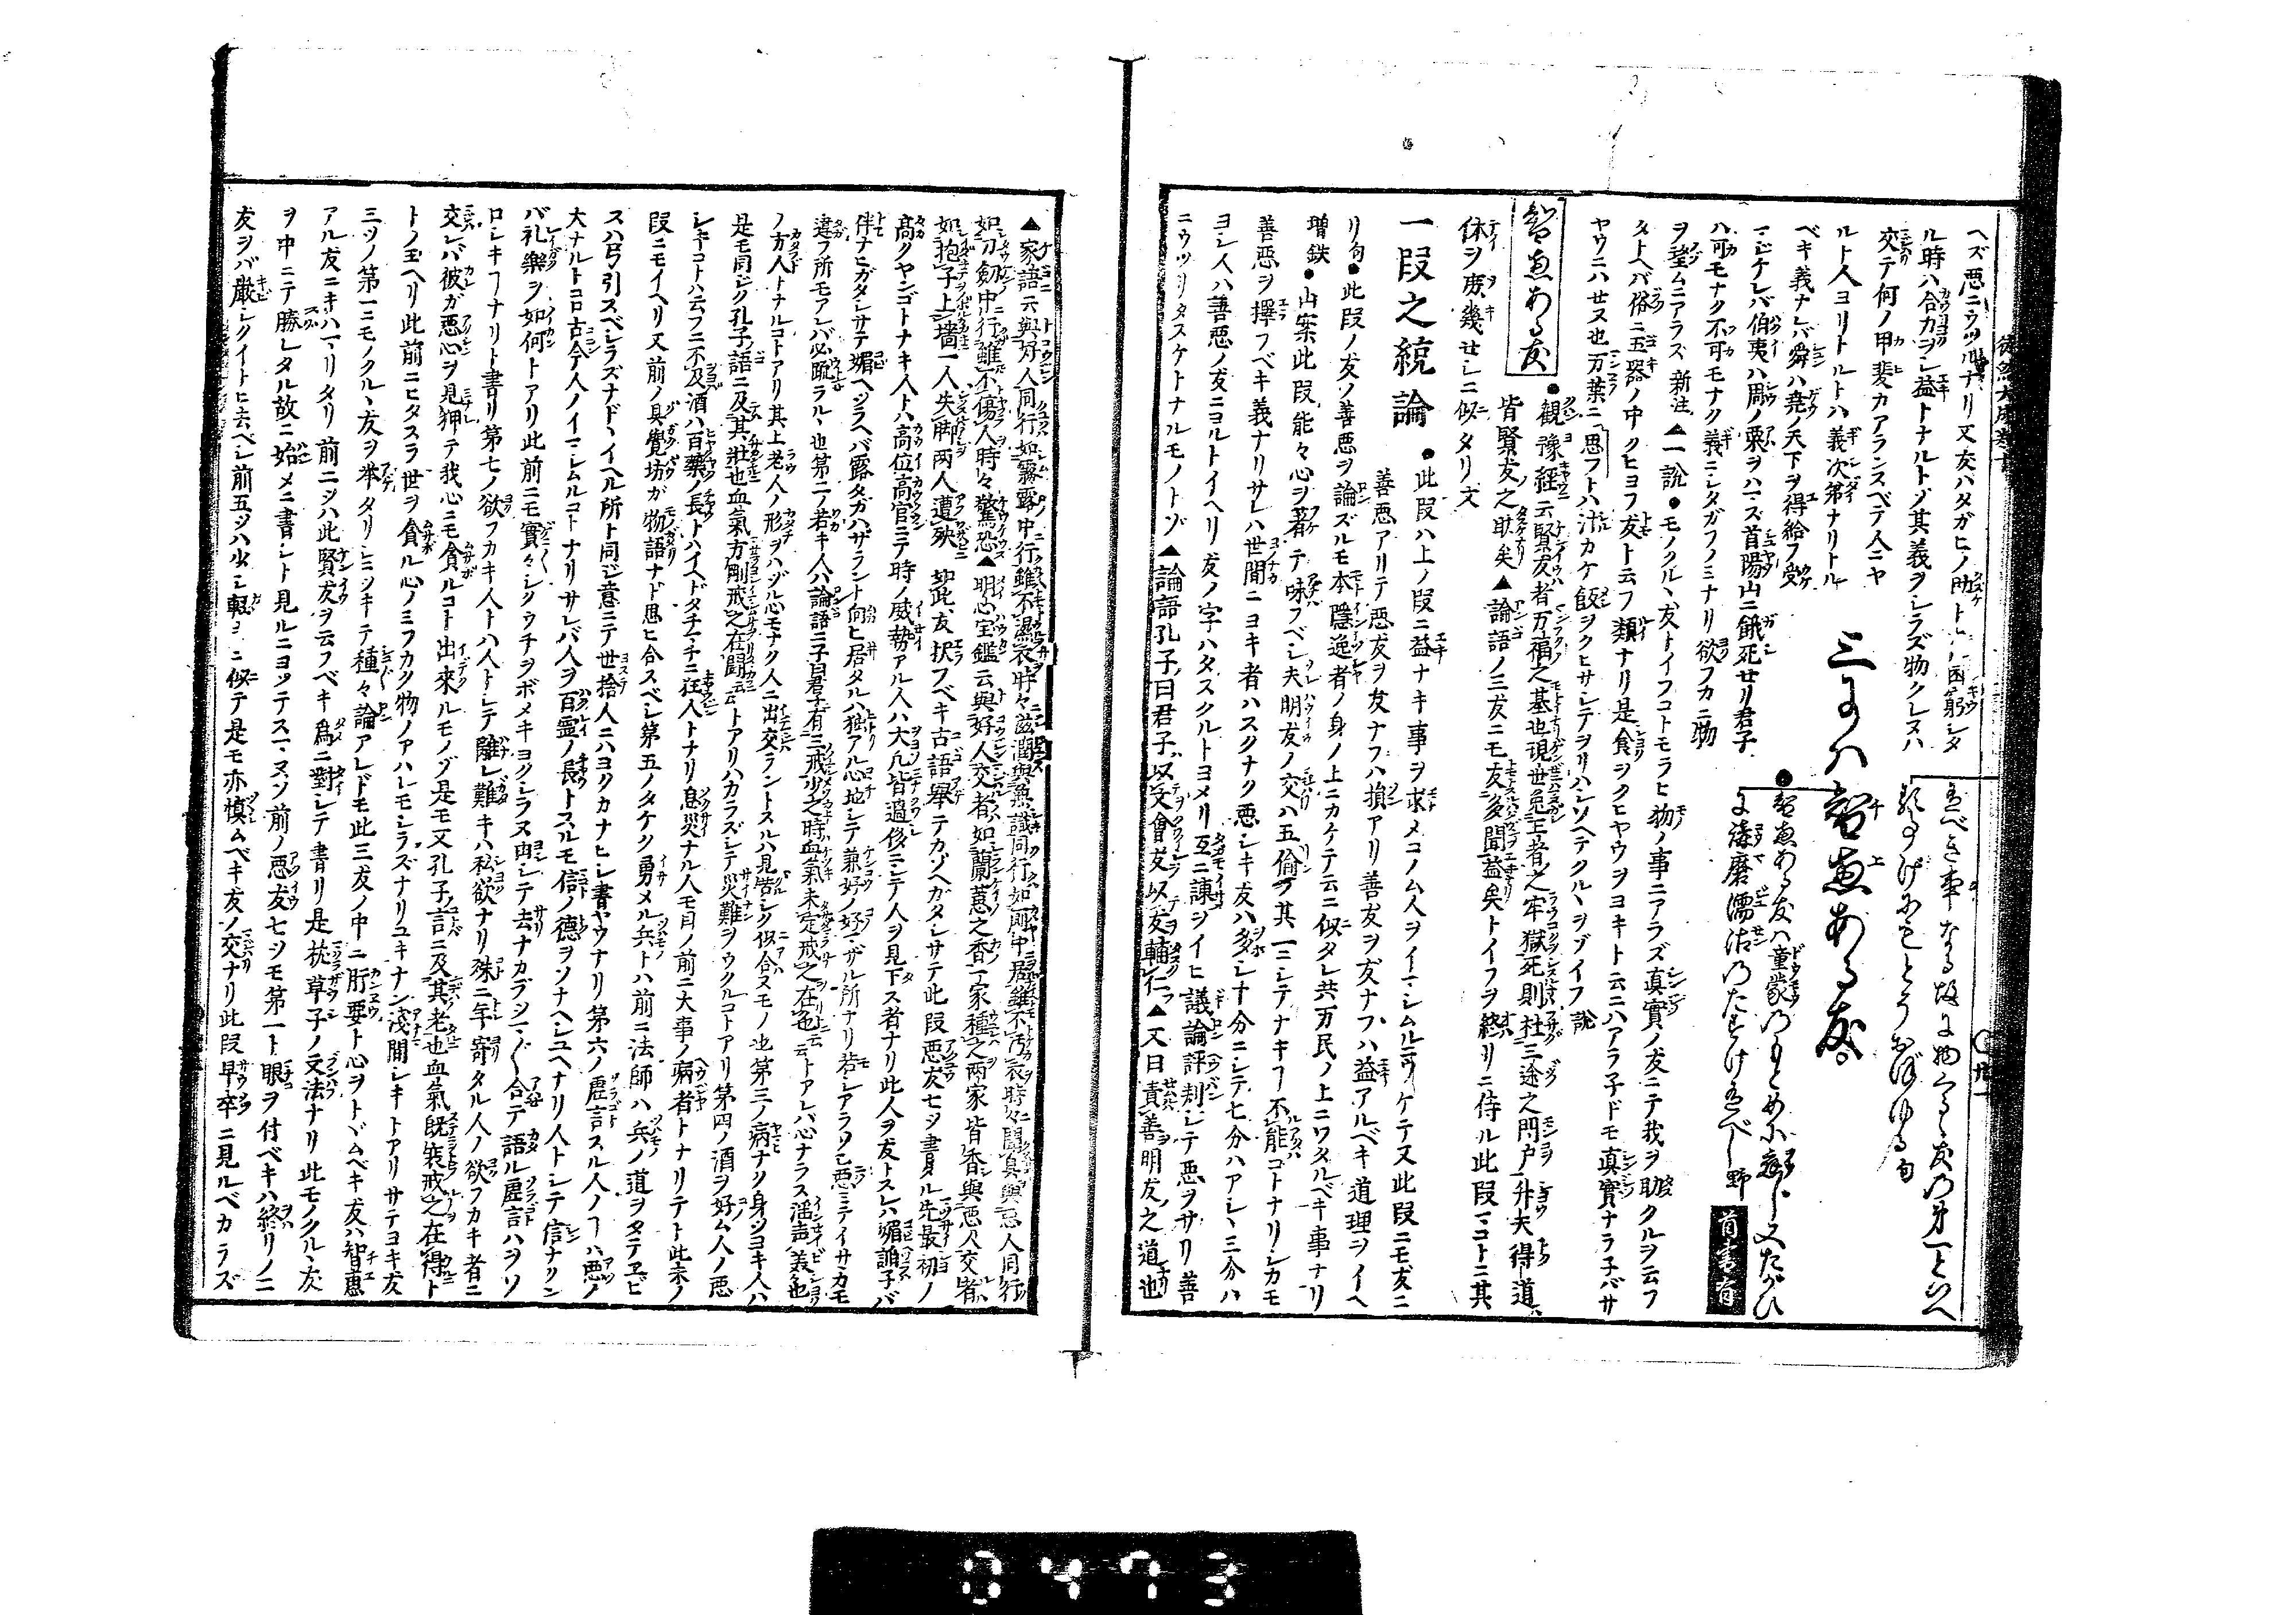 徒然大成卷十
ヘズ悪ニウツルナリ又友ハタガヒノ助ト
ル時ハ合力ヲシ益トナルトゾ其義ヲシラズ物クレヌハ
交テ何ノ甲斐カアランスベテ人ニヤ
ルト人ヨリトルトハ義次第ナリトル
ベキ義ナレバ舜ハ堯ノ天下ヲ得給フ受
マジケレバ伯夷ハ周ノ粟ヲハマズ首陽山ニ餓死セリ君子
ハ可モナク不可モナク義ニシタガフノミナリ欲フカニ物
ヲ望ムニアラズ新注▲一説●モノクルヽ友トイフコトモラヒ物ノ事ニアラズ真實ノ友ニテ我ヲ助クルヲ云フ
タトヘバ俗ニ五器ノ中クヒヨフ友ト云フ類ナリ是食ヲクヒヤウヲヨキト云ニハアラ子ドモ真實ナラ子バサ
ヤウニハセヌ也万葉ニ思フトハ汁カケ飯ヲクヒサシテヲリハシソヘテクルヽヲゾイフ説
三にハ智恵ある友
●智恵ある友ハ童蒙のもとめ
に琢磨濡沾のたすけ有べし野
首書有
智恵ある友
●観豫経云賢友者万福之基也現世免王者之牢獄死則杜三途之門戸升夫得道ハ
皆賢友之助矣▲論語ノ三友ニモ友多聞益矣トイフヲ終リニ侍ル此段マコトニ其
体ヲ庶幾セシニ似タリ文
一段之統論
●此段ハ上ノ段ニ益ナキ事ヲ求メコノム人ヲイマシムルニウケテ又此段ニモ友ニ
善悪アリテ悪友ヲ友ナフハ損アリ善友ヲ友ナフハ益アルベキ道理ヲイヘ
リ句●此段ノ友ノ善悪ヲ論ズルモ本隠逸者ノ身ノ上ニカケテ云ニ似タレ共万民ノ上ニワタルベキ事ナリ
増鉄●山案此段能々心ヲ著テ味フベシ夫朋友ノ交ハ五倫ノ其一ニシテナキコト不能コトナリシカモ
善悪ヲ擇フベキ義ナリサレハ世間ニヨキ者ハスクナク悪シキ友ハ多シ十分ニシテ七分ハアシヽ三分ハ
ヨシ人ハ善悪ノ友ニヨルトイヘリ友ノ字ハタスクルトヨメリ互ニ諫ヲイヒ議論評判シテ悪ヲサリ善
ニウツリタスケトナルモノトゾ▲論語孔子曰君子以文會友以友輔仁▲又曰責善朋友之道也
▲家語云與好人同行如霧露中行雖不濕衣時々滋潤與無識同行如厠中居雖不汚衣時々聞臭與惡人同行
如刀劔中行雖不傷人時々驚恐▲明心宝鑑云與好人交者如蘭蕙之香一家種之兩家皆香與悪人交者
如抱子上墻一人失脚兩人遭殃如此友択フベキ古語舉テカゾヘガタシサテ此段悪友七ヲ書タル先最初ノ
高クヤンゴトナキ人トハ高位高官ニテ時ノ威勢アル人ハ大凡皆過侈ニシテ人ヲ見下ス者ナリ此人ヲ友トスレハ媚諂子バ
伴ナヒガタシサテ媚ヘツラヘバ露タガハザラント向ヒ居タルハ独アル心地シテ兼好ノ好マザル所ナリ若シアラソヒ悪ミテイサカモ
違フ所モアレバ必疏ラルヽ也第二ノ若キ人ハ論語ニ子曰君子有三戒少之時血氣未定戒之在色云トアレバ心ナラス淫声美色
ノ方人トナルコトアリ其上老人ノ形ヲハヂル心モナク人ニ出交ラントスルハ見苦シク似合ヌモノ也第三ノ病ナク身ツヨキ人ハ
是モ同シク孔子語ニ及其壮也血氣方剛戒之在闘云トアリハカラズシテ災難ヲウクルコトアリ第四ノ酒ヲ好ム人ノ悪
シキコトハ云フニ不及酒ハ百藥ノ長トハイヘドタチマチニ狂人トナリ息災ナル人モ目ノ前ニ大事ノ病者トナリテト此末ノ
段ニモイヘリ又前ノ具覺坊ガ物語ナド思ヒ合スベシ第五ノタケク勇メル兵トハ前ニ法師ハ兵ノ道ヲタテヱビ
スハ弓引スベシラズナドヽイヘル所ト同シ意ニテ世捨人ニハヨクカナヒシ書ヤウナリ第六ノ虚言スル人ノコハ悪ノ
大ナルトコロ古今人ノイマシムルコトナリサレバ人ヲ百霊ノ長トスルモ信ノ德ヲソナヘシユヘナリ人トシテ信ナクン
バ礼樂ヲ如何トアリ此前ニモ實々シクウチヲボメキヨクシラヌ由シテ去ナカラツマ〴〵合テ語ル虚言ハヲソ
ロシキコナリト書リ第七ノ欲フカキ人トハ人トシテ離レ難キハ私欲ナリ殊ニ年寄タル人ノ欲フカキ者ニ
交レバ彼ガ悪心ヲ見押テ我心ニモ貪ルコト出來ルモノゾ是モ又孔子ノ言ニ及其老也血氣既衰戒之在得ト
トノ玉ヘリ此前ニヒタスラ世ヲ貪ル心ノミフカク物ノアハレモシラズナリユキナン淺間シキトアリサテヨキ友
三ツノ第一ニモノクルヽ友ヲ挙タリシニツキテ種々論アレドモ此三友ノ中ニ肝要ト心ヲトヾムベキ友ハ智恵
アル友ニキハマリタリ前二ツハ此賢友ヲ云フベキ為ニ對シテ書リ是枕草子ノ文法ナリ此モノクルヽ友
ヲ中ニテ勝レタル故ニ始メニ書シト見ルニヨツテスマヌソ前ノ悪友七ツモ第一ト眼ヲ付ベキハ終リノ二
友ヲバ厳シクイトヒ去ベシ前五ツハ少シ軽キニ似テ是モ亦慎ムベキ友ノ交ナリ此段早卒ニ見ルベカラズ
0473